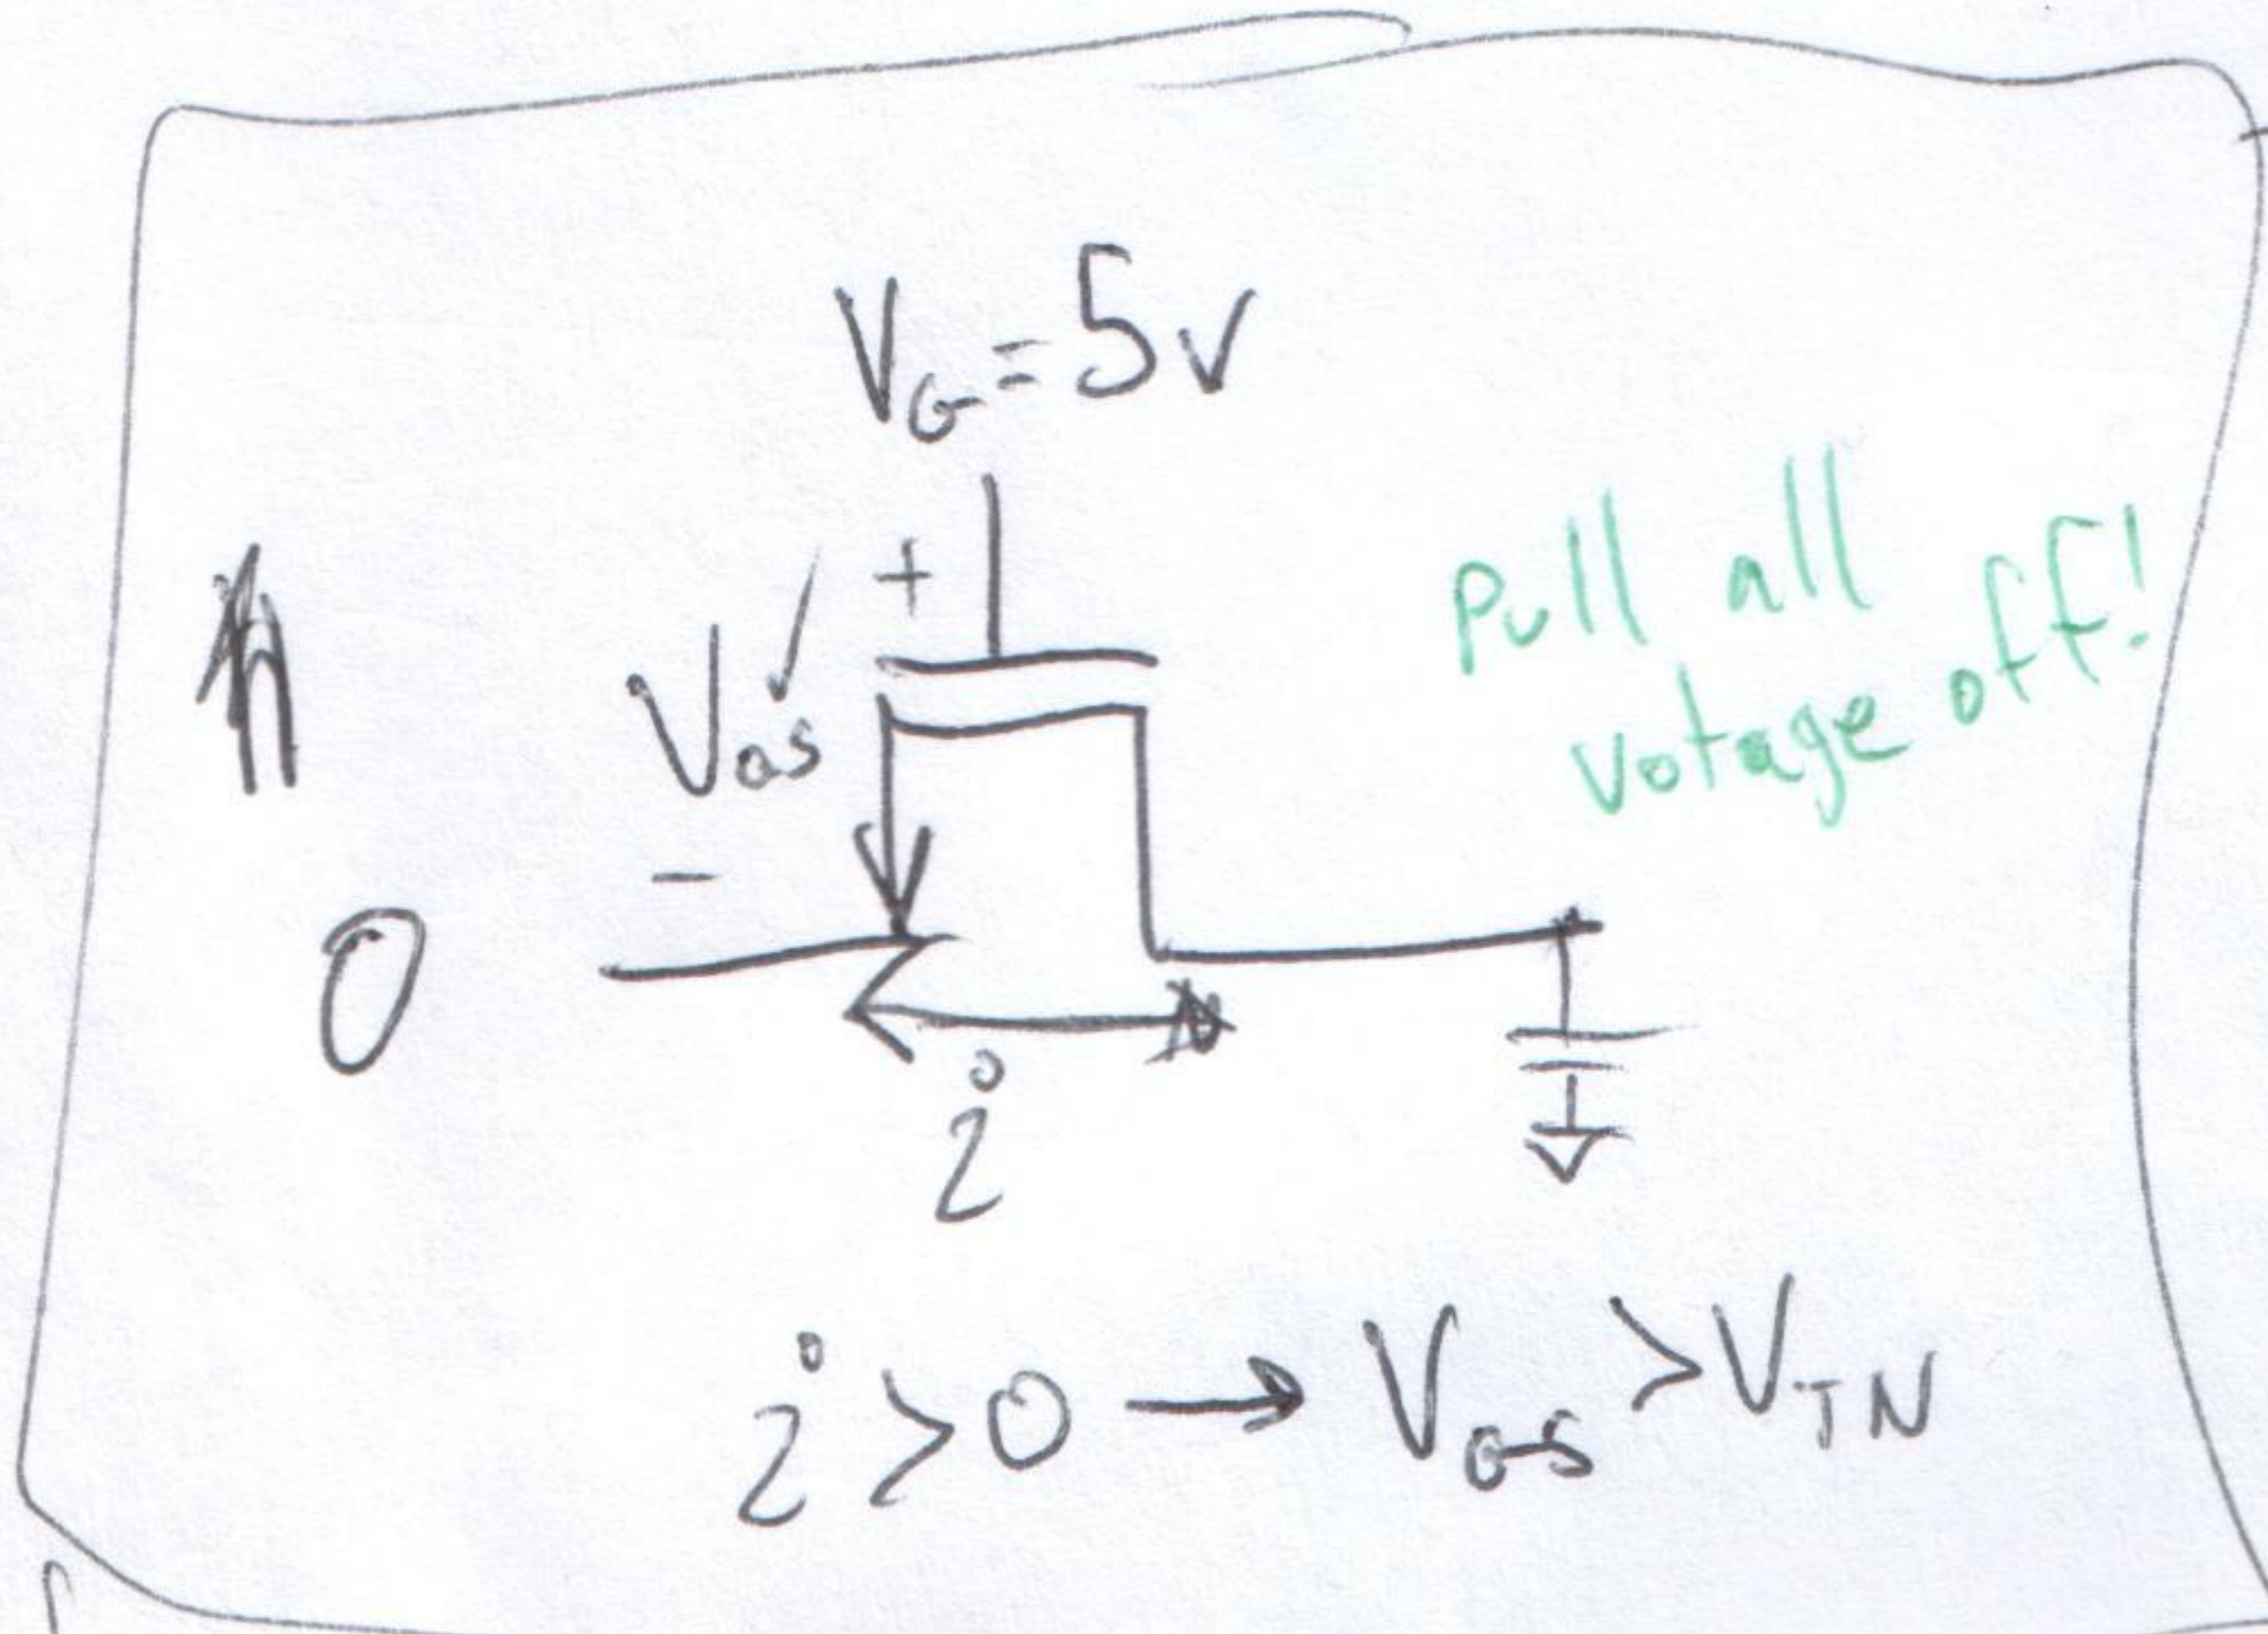 V_G = 5v
n
+
V_GS ✓
-
0
i
Pull all
votage off!
i > 0 → V_GS > V_TN